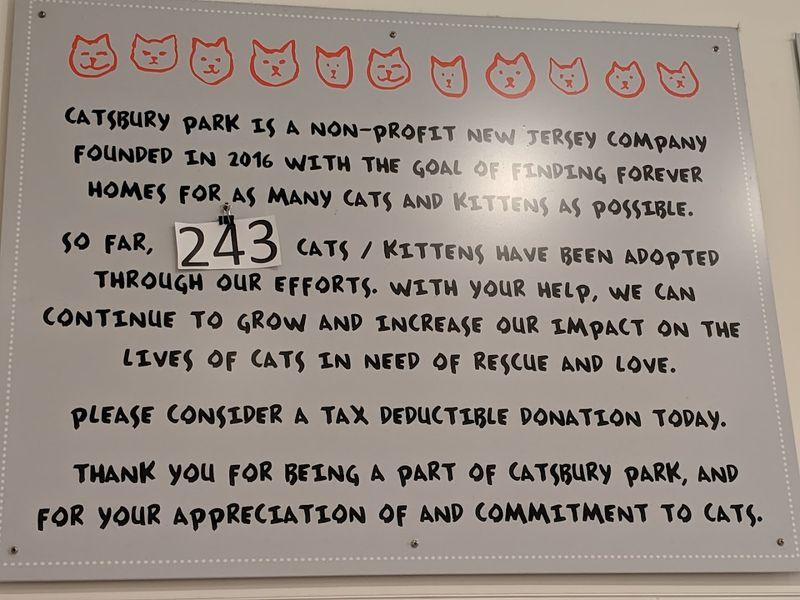 CATSBURY PARK IS A NON-PROFIT NEW JERSEY COMPANY
FOUNDED IN 2016 WITH THE GOAL OF FINDING FOREVER
HOMES FOR AS MANY CATS AND KITTENS AS POSSIBLE.
SO FAR, 243 CATS / KITTENS HAVE BEEN ADOPTED
THROUGH OUR EFFORTS. WITH YOUR HELP, WE CAN
CONTINUE TO GROW AND INCREASE OUR IMPACT ON THE
LIVES OF CATS IN NEED OF RESCUE AND LOVE.
PLEASE CONSIDER A TAX DEDUCTIBLE DONATION TODAY.
THANK YOU FOR BEING A PART OF CATSBURY PARK, AND
FOR YOUR APPRECIATION OF AND COMMITMENT TO CATS.